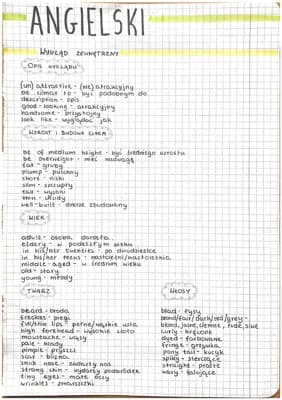 ANGIELSKI
WYGLĄD ZEWNĘTRZNY
OPIS WYGLĄDU
(un) attractive - (nie) atrakcyjny
be similar to - być podobnym do
description - opis
good-looking - atrakcyjny
handsome - przystojny
look like - wyglądać jak
WZROST I BUDOWA CIAŁA
be of medium height - być średniego wzrostu
be overweight - mieć nadwagę
fat - gruby
plump - pulchny
short - niski
slim - szczupły
tall - wysoki
thin - chudy
well-built - dobrze zbudowany
WIEK
adult - osoba dorosła
eldery - w podeszłym wieku
in his/her twenties - po dwudziestce
in his/her teens - nastoletni/nastoletnia
middle-aged - w średnim wieku
old - stary
young - młody
TWARZ
beard - broda
freckles - piegi
full/thin lips - pełne/wąskie usta
high forehead - wysokie czoło
moustache - wąsy
pale - blady
pimple - pryszcz
scar - blizna
snub nose - zadarty nos
strong chin - wydatny podbródek
tiny eyes - małe oczy
wrinkles - zmarszczki
WŁOSY
bald - łysy
blond/fair/dark/red/grey -
blond, jasne, ciemne, rude, siwe
curly - kręcone
dyed - farbowane
fringe - grzywka
pony tail - kucyk
spiky - sterczące
straight - proste
wavy - falujące